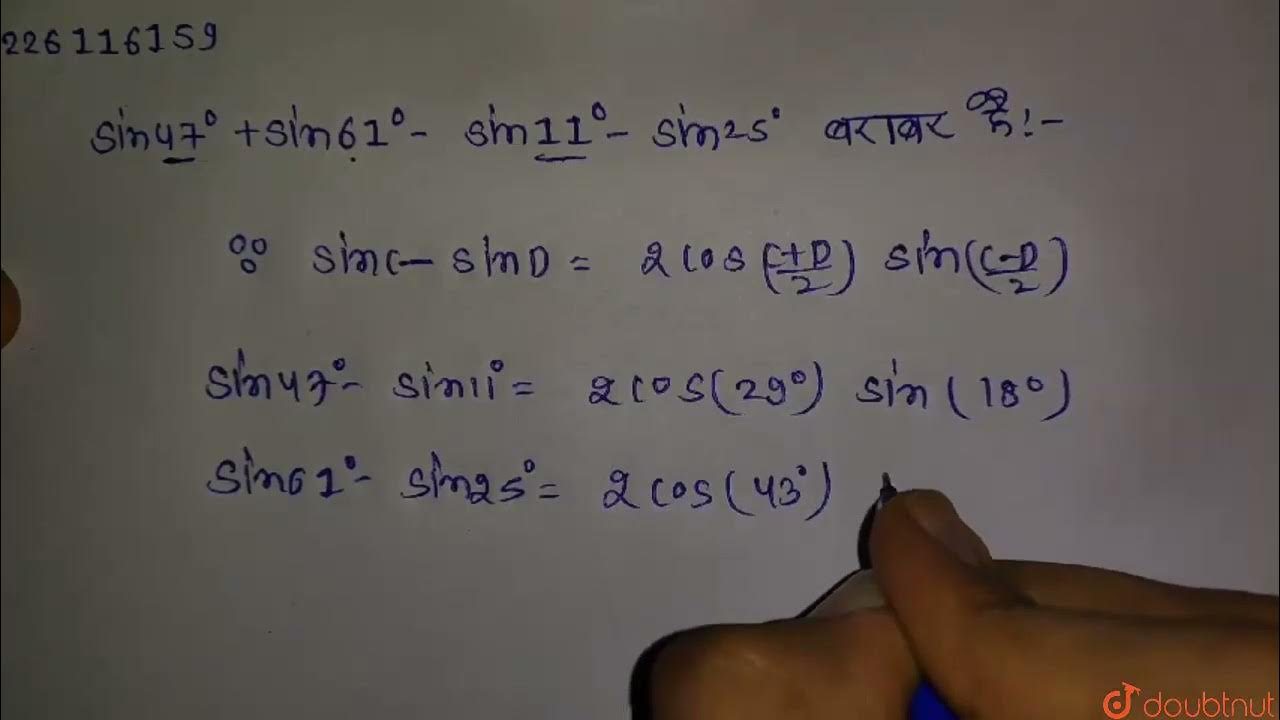 226116159
sin47° + sin61° - sin11° - sin25° बराबर है :-
∵ sinC - sinD = 2 cos (C+D/2) sin (C-D/2)
sin47° - sin11° = 2 cos (29°) sin (18°)
sin61° - sin25° = 2 cos (43°)
doubtnut